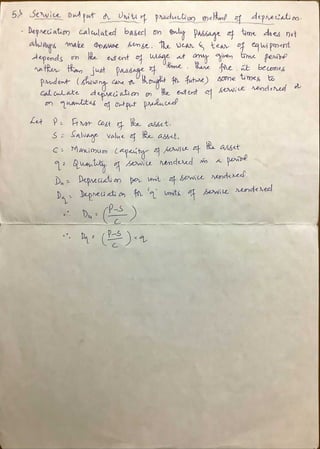 5.) Service output or Units of production method of depreciation.
- Depreciation calculated based on only passage of time does not
always make sense. The wear & tear of equipment
depends on the extent of usage at any given time period
rather than just passage of time. There fore it becomes
prudent (showing care & thought for future) some times to
calculate depreciation on the extent of service rendered or
on quantities of output produced
Let P = First Cost of the asset.
S = Salvage value of the asset.
C = Maximum Capacity of service of the asset
q = Quantity of service rendered in a period
Du = Depreciation per unit of service rendered.
Dq = Depreciation for 'q' units of service rendered
∵ Du = (P-S / C)
∴ Dq = (P-S / C) × q